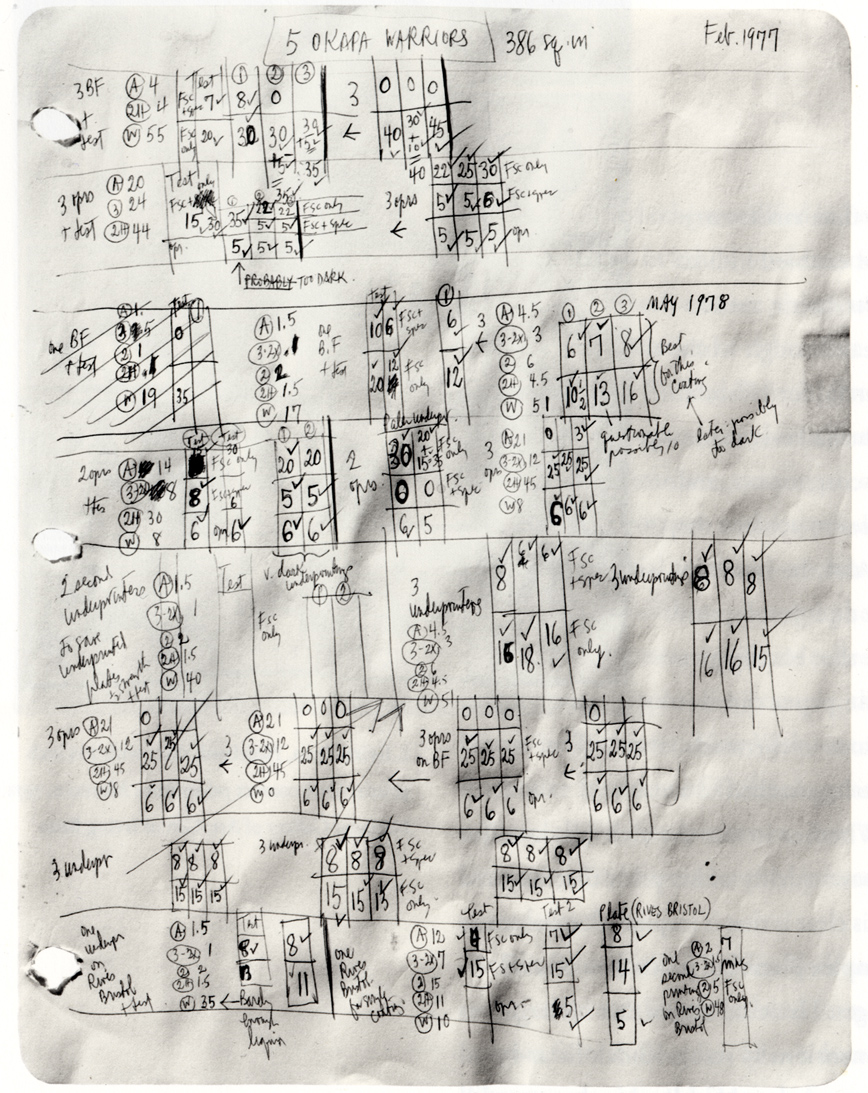 5 OKAPA WARRIORS 386 sq.in Feb. 1977
3 BF + test
A 4
2H 4
W 55
Test 1 2 3
Fsc + spec 7 8 0
Fsc only 20 30 30 30
+5 35
3
0 0 0
40 30 45
40
3 oprs + test
A 20
3 24
2H 44
Test only
15 30 35 22 22 Fsc only
5 5 Fsc + spec
opr. 5 5 5
3 oprs
22 25 30 Fsc only
5 5 6 Fsc + spec
5 5 5 opr.
PROBABLY TOO DARK.
one BF + test
2 1
W 19
Test 1
0
35
A 1.5
3-2x .1
2 2
2H 1.5
W 17
one B.F + test
Test 1
10 6 Fsc + spec 6
20 12 Fsc only 12
3
A 4.5
3-2x 3
2 6
2H 4.5
W 51
1 2 3 MAY 1978
6 7 8
10½ 13 16
Best for this coating
questionable possibly 10
later: possibly too dark
2 oprs + tes
A 14
3-2x 8
2H 30
W 8
Test Test
30
Fsc only
8 Fsc + spec 6
6 opr 6
1 2
20 20
5 5
6 6
v. dark underprintings
2 oprs.
Paler underpr
30 20 Fsc only
0 0 Fsc + spec
6 5
3 oprs
A 21
3-2x 12
2H 45
W 8
0 3
25 25 25
6 6 6
2 second underprinters
To save underprinted plates
strength + test
A 1.5
3-2x 1
2 2
2H 1.5
W 40
Test
Fsc only
1 2
3 underprinters
A 4.5
3-2x 3
2 6
2H 4.5
W 51
8 6 6 Fsc + spec
16 18 16 Fsc only.
3 underprintings
8 8 8
16 16 15
3 oprs
A 21
3-2x 12
2H 45
W 8
0
25 25 25
6 6 6
3
A 21
3-2x 12
2H 45
W 0
0 0 0
25 25 25
6 6 6
3 oprs on BF
0 0 0
25 25 25 Fsc + spec
6 6 6 opr.
3
0
25 25 25
6 6 6
3 underpr
8 8 8
15 15 15
3 underpr.
8 8 8 Fsc + spec
15 15 15 Fsc only
8 8 8
15 15 15
one underpr on Rives Bristol + test
A 1.5
3-2x 1
2 2
2H 1.5
W 35
Test
8 8
13 11
Barely enough liquid
one Rives Bristol for single coating.
A 12
3-2x 7
2 15
2H 11
W 10
Test Test 2 Plate (RIVES BRISTOL)
Fsc only 7 8
15 Fs + spec 15 14
opr. 5 5
one second printing on Rives Bristol
A 2
2 5
W 48
7 mins Fsc only.